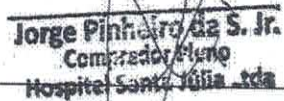 Jorge Pinheiro da S. Jr.
Comprador Pleno
Hospital Santa Júlia Ltda